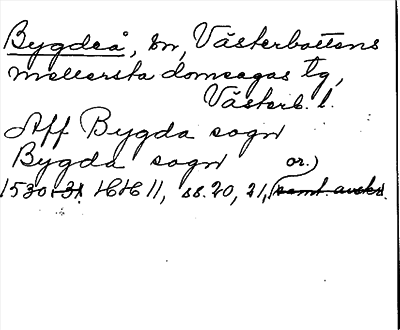 Bygdeå, sn, Västerbottens
mellersta domsagas tg,
Västerb. l.
Aff Bygda sogn
Bygda sogn or.)
1530-31 HH 11, ss. 20, 21, (samt. avskr.